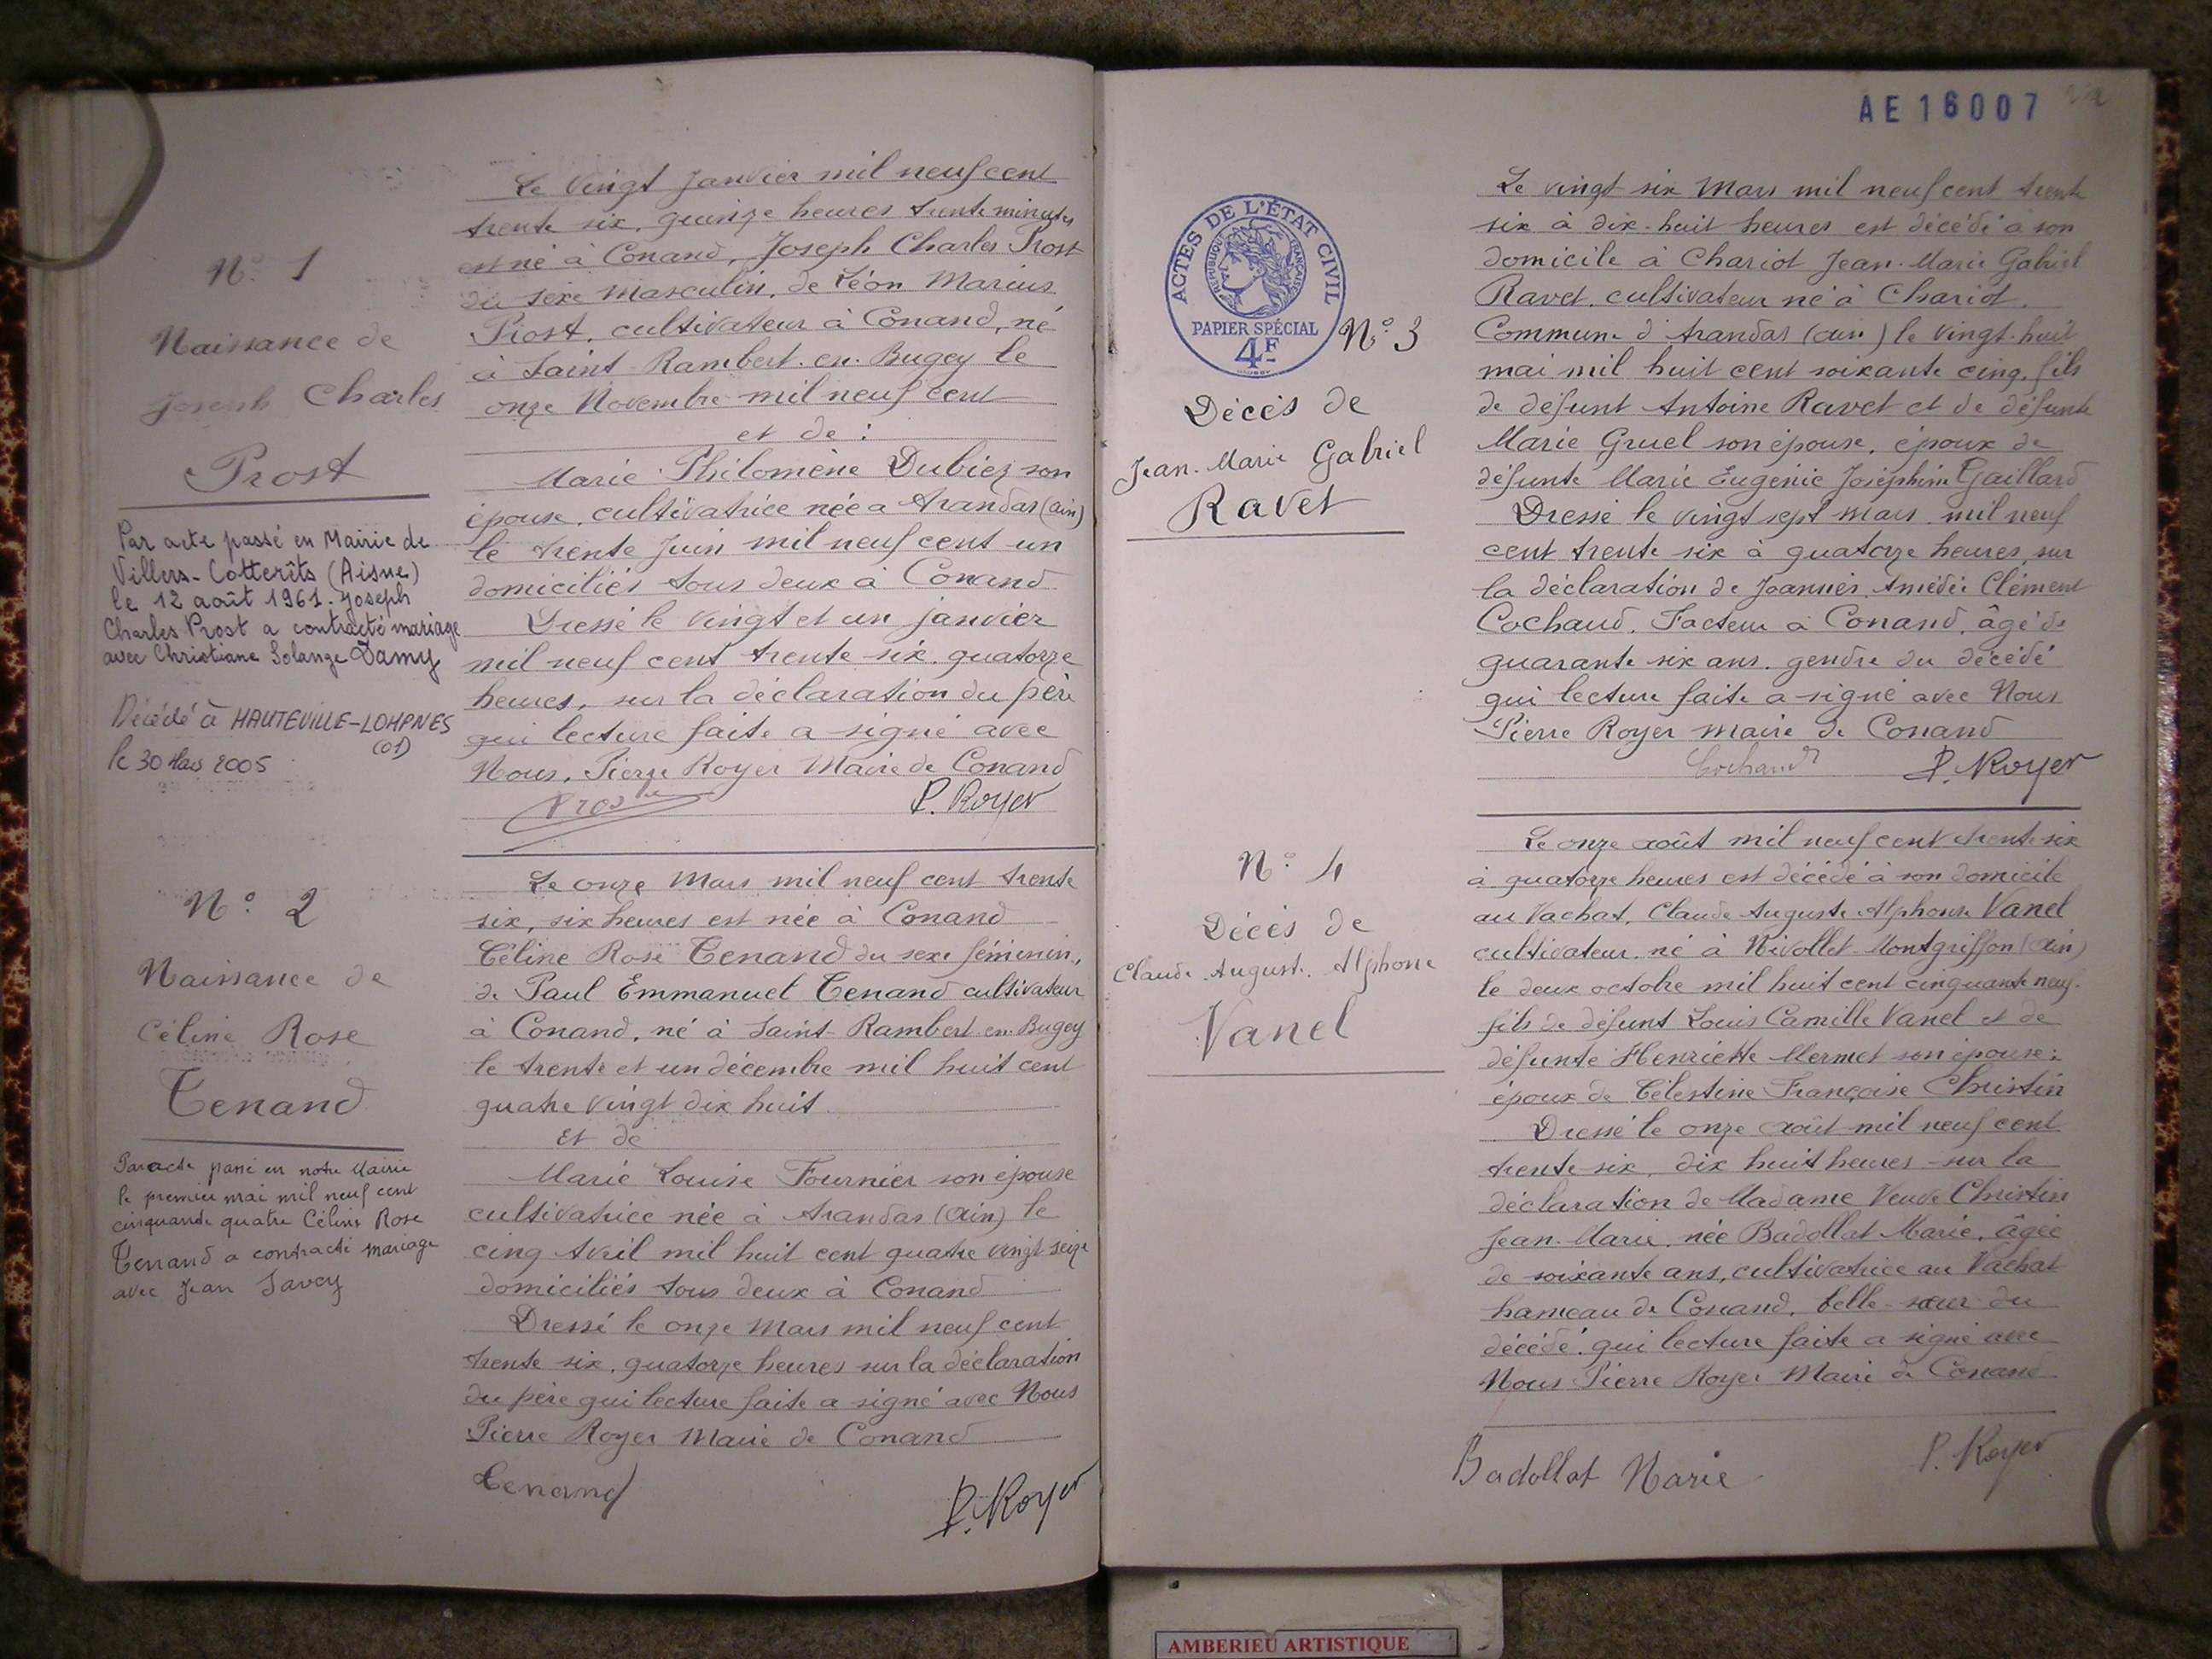 N° 1
Naissance de
Joseph Charles
Prost
Par acte passé en Mairie de
Villers-Cotterêts (Aisne)
le 12 août 1961. Joseph
Charles Prost a contracté mariage
avec Christiane Solange Damy
Décédé à HAUTEVILLE-LOMPNES
(01)
le 30 Mars 2005
Le vingt Janvier mil neuf cent
trente six, quinze heures trente minutes
est né à Conand, Joseph Charles Prost
du sexe masculin, de Léon Marius
Prost, cultivateur à Conand, né
à Saint-Rambert-en-Bugey le
onze Novembre mil neuf cent
et de :
Marie Philomène Dubiez son
épouse, cultivatrice née a Arandas (ain)
le trente Juin mil neuf cent un
domiciliés tous deux à Conand
Dressé le vingt et un janvier
mil neuf cent trente six, quatorze
heures, sur la déclaration du père
qui lecture faite a signé avec
Nous, Pierre Royer Maire de Conand
Prost
P. Royer
N° 2
Naissance de
Céline Rose
Tenand
Par acte passé en notre Mairie
le premier mai mil neuf cent
cinquante quatre Céline Rose
Tenand a contracté mariage
avec Jean Savey
Le onze Mars mil neuf cent trente
six, six heures est née à Conand
Céline Rose Tenand du sexe féminin,
de Paul Emmanuel Tenand cultivateur
à Conand, né à Saint-Rambert-en-Bugey
le trente et un décembre mil huit cent
quatre vingt dix huit
Et de
Marie Louise Fournier son épouse
cultivatrice née à Arandas (Ain) le
cinq Avril mil huit cent quatre vingt seize
domiciliés tous deux à Conand
Dressé le onze Mars mil neuf cent
trente six, quatorze heures sur la déclaration
du père qui lecture faite a signé avec Nous
Pierre Royer Maire de Conand
Tenand
P. Royer
AE 16007
ACTES DE L'ÉTAT CIVIL
RÉPUBLIQUE FRANÇAISE
PAPIER SPÉCIAL
4F
N° 3
Décès de
Jean-Marie Gabriel
Ravet
Le vingt six Mars mil neuf cent trente
six à dix-huit heures est décédé à son
domicile à Chariot Jean-Marie Gabriel
Ravet, cultivateur né à Chariot,
Commune d'Arandas (ain) le vingt-huit
mai mil huit cent soixante cinq, fils
de défunt Antoine Ravet et de défunte
Marie Gruel son épouse, époux de
défunte Marie Eugénie Joséphine Gaillard
Dressé le vingt sept Mars mil neuf
cent trente six à quatorze heures, sur
la déclaration de Joannès Amédée Clément
Cochaud, Facteur à Conand, âgé de
quarante six ans, gendre du décédé
qui lecture faite a signé avec Nous
Pierre Royer Maire de Conand
Cochaud
P. Royer
N° 4
Décès de
Claude Auguste Alphonse
Vanel
Le onze août mil neuf cent trente-six
à quatorze heures est décédé à son domicile
au Vachat, Claude Auguste Alphonse Vanel
cultivateur né à Nivollet-Montgriffon (Ain)
le deux octobre mil huit cent cinquante neuf.
fils de défunt Louis Camille Vanel et de
défunte Henriette Mermet son épouse ;
époux de Célestine Françoise Christin
Dressé le onze août mil neuf cent
trente-six, dix huit heures sur la
déclaration de Madame Veuve Christin
Jean-Marie, née Badollat Marie, âgée
de soixante ans, cultivatrice au Vachat
hameau de Conand, belle-sœur du
décédé, qui lecture faite a signé avec
Nous Pierre Royer Maire de Conand
Badollat Marie
P. Royer
AMBERIEU ARTISTIQUE